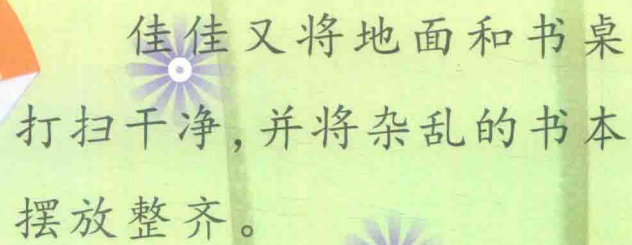 佳佳又将地面和书桌
打扫干净,并将杂乱的书本
摆放整齐。